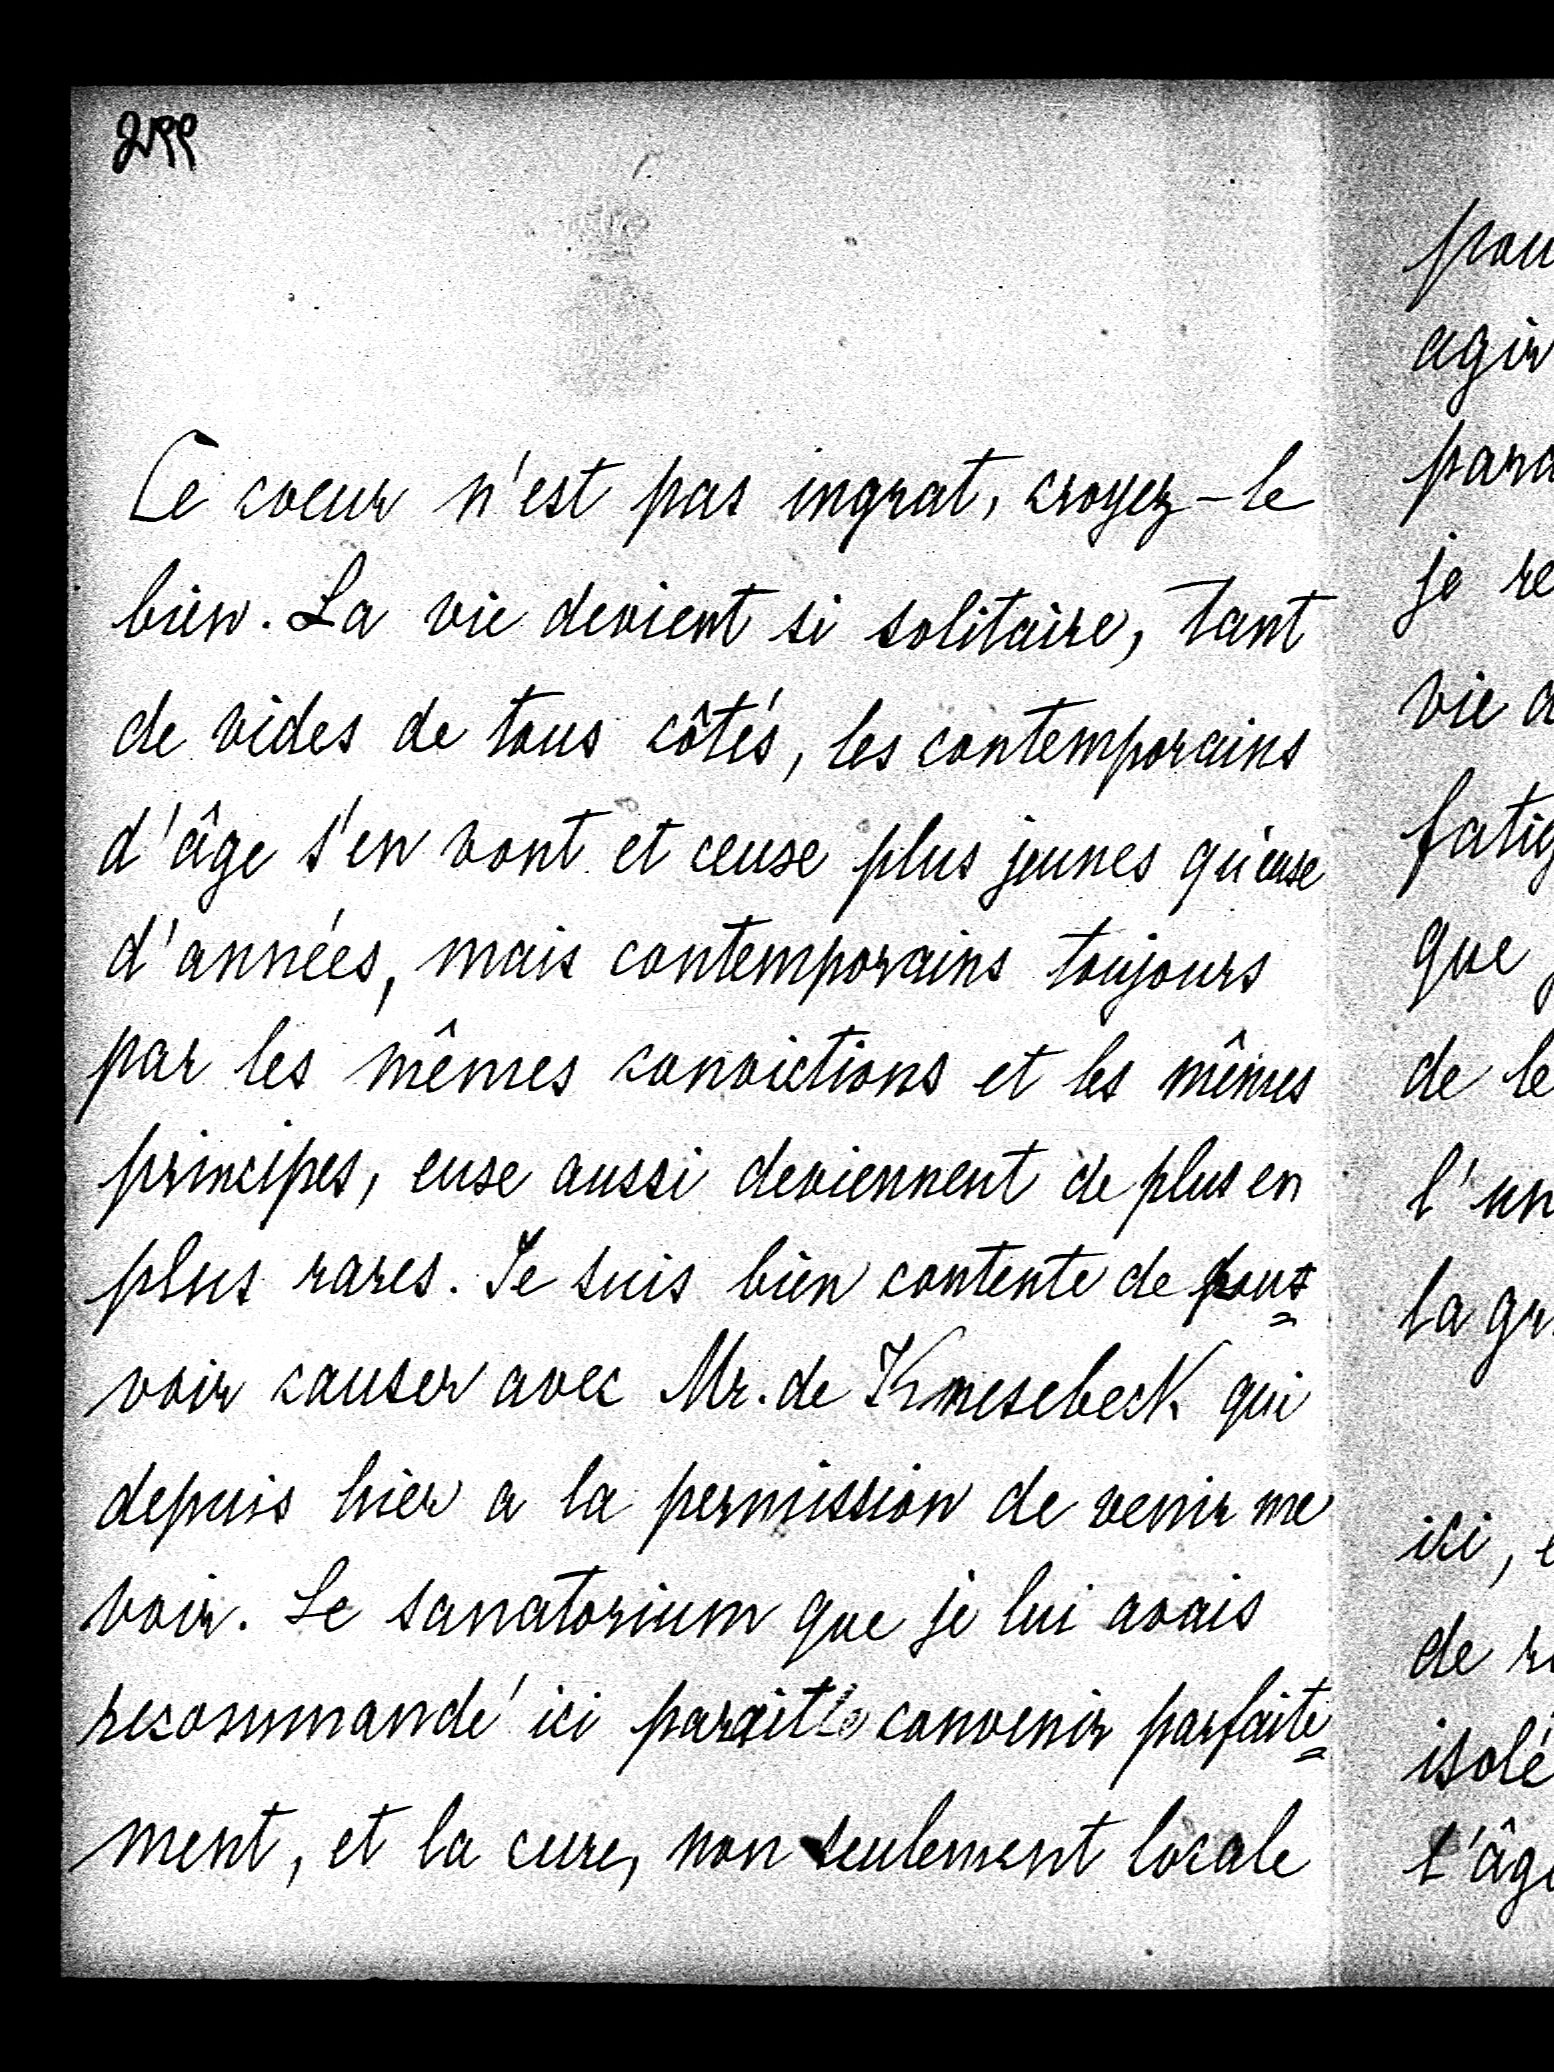 299
Ce coeur n'est pas ingrat, croyez-le
bien. La vie devient si solitaire, tant
de vides de tous côtés, les contemporains
d'âge s'en vont et ceux plus jeunes qu'eux
d'années, mais contemporains toujours
par les mêmes convictions et les mêmes
principes, eux aussi deviennent de plus en
plus rares. Je suis bien contente de pou=
voir causer avec Mr. de Knesebeck qui
depuis hier a la permission de venir me
voir. Le sanatorium que je lui avais
recommandé ici parait le convenir parfaite=
ment, et la cure, non seulement locale
pou
agir
para
je re
vie a
fatig
que j
de le
l'un
la gr
ici, e
de re
isolé
l'âge